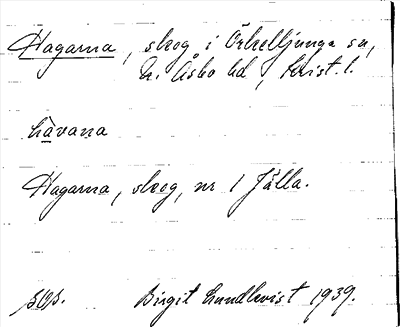 Hagarna, skog i Örkelljunga sn,
N. Åsbo hd, Krist. l.
hàvana
Hagarna, skog, nr 1 Jälla.
Birgit Lundkvist 1939.